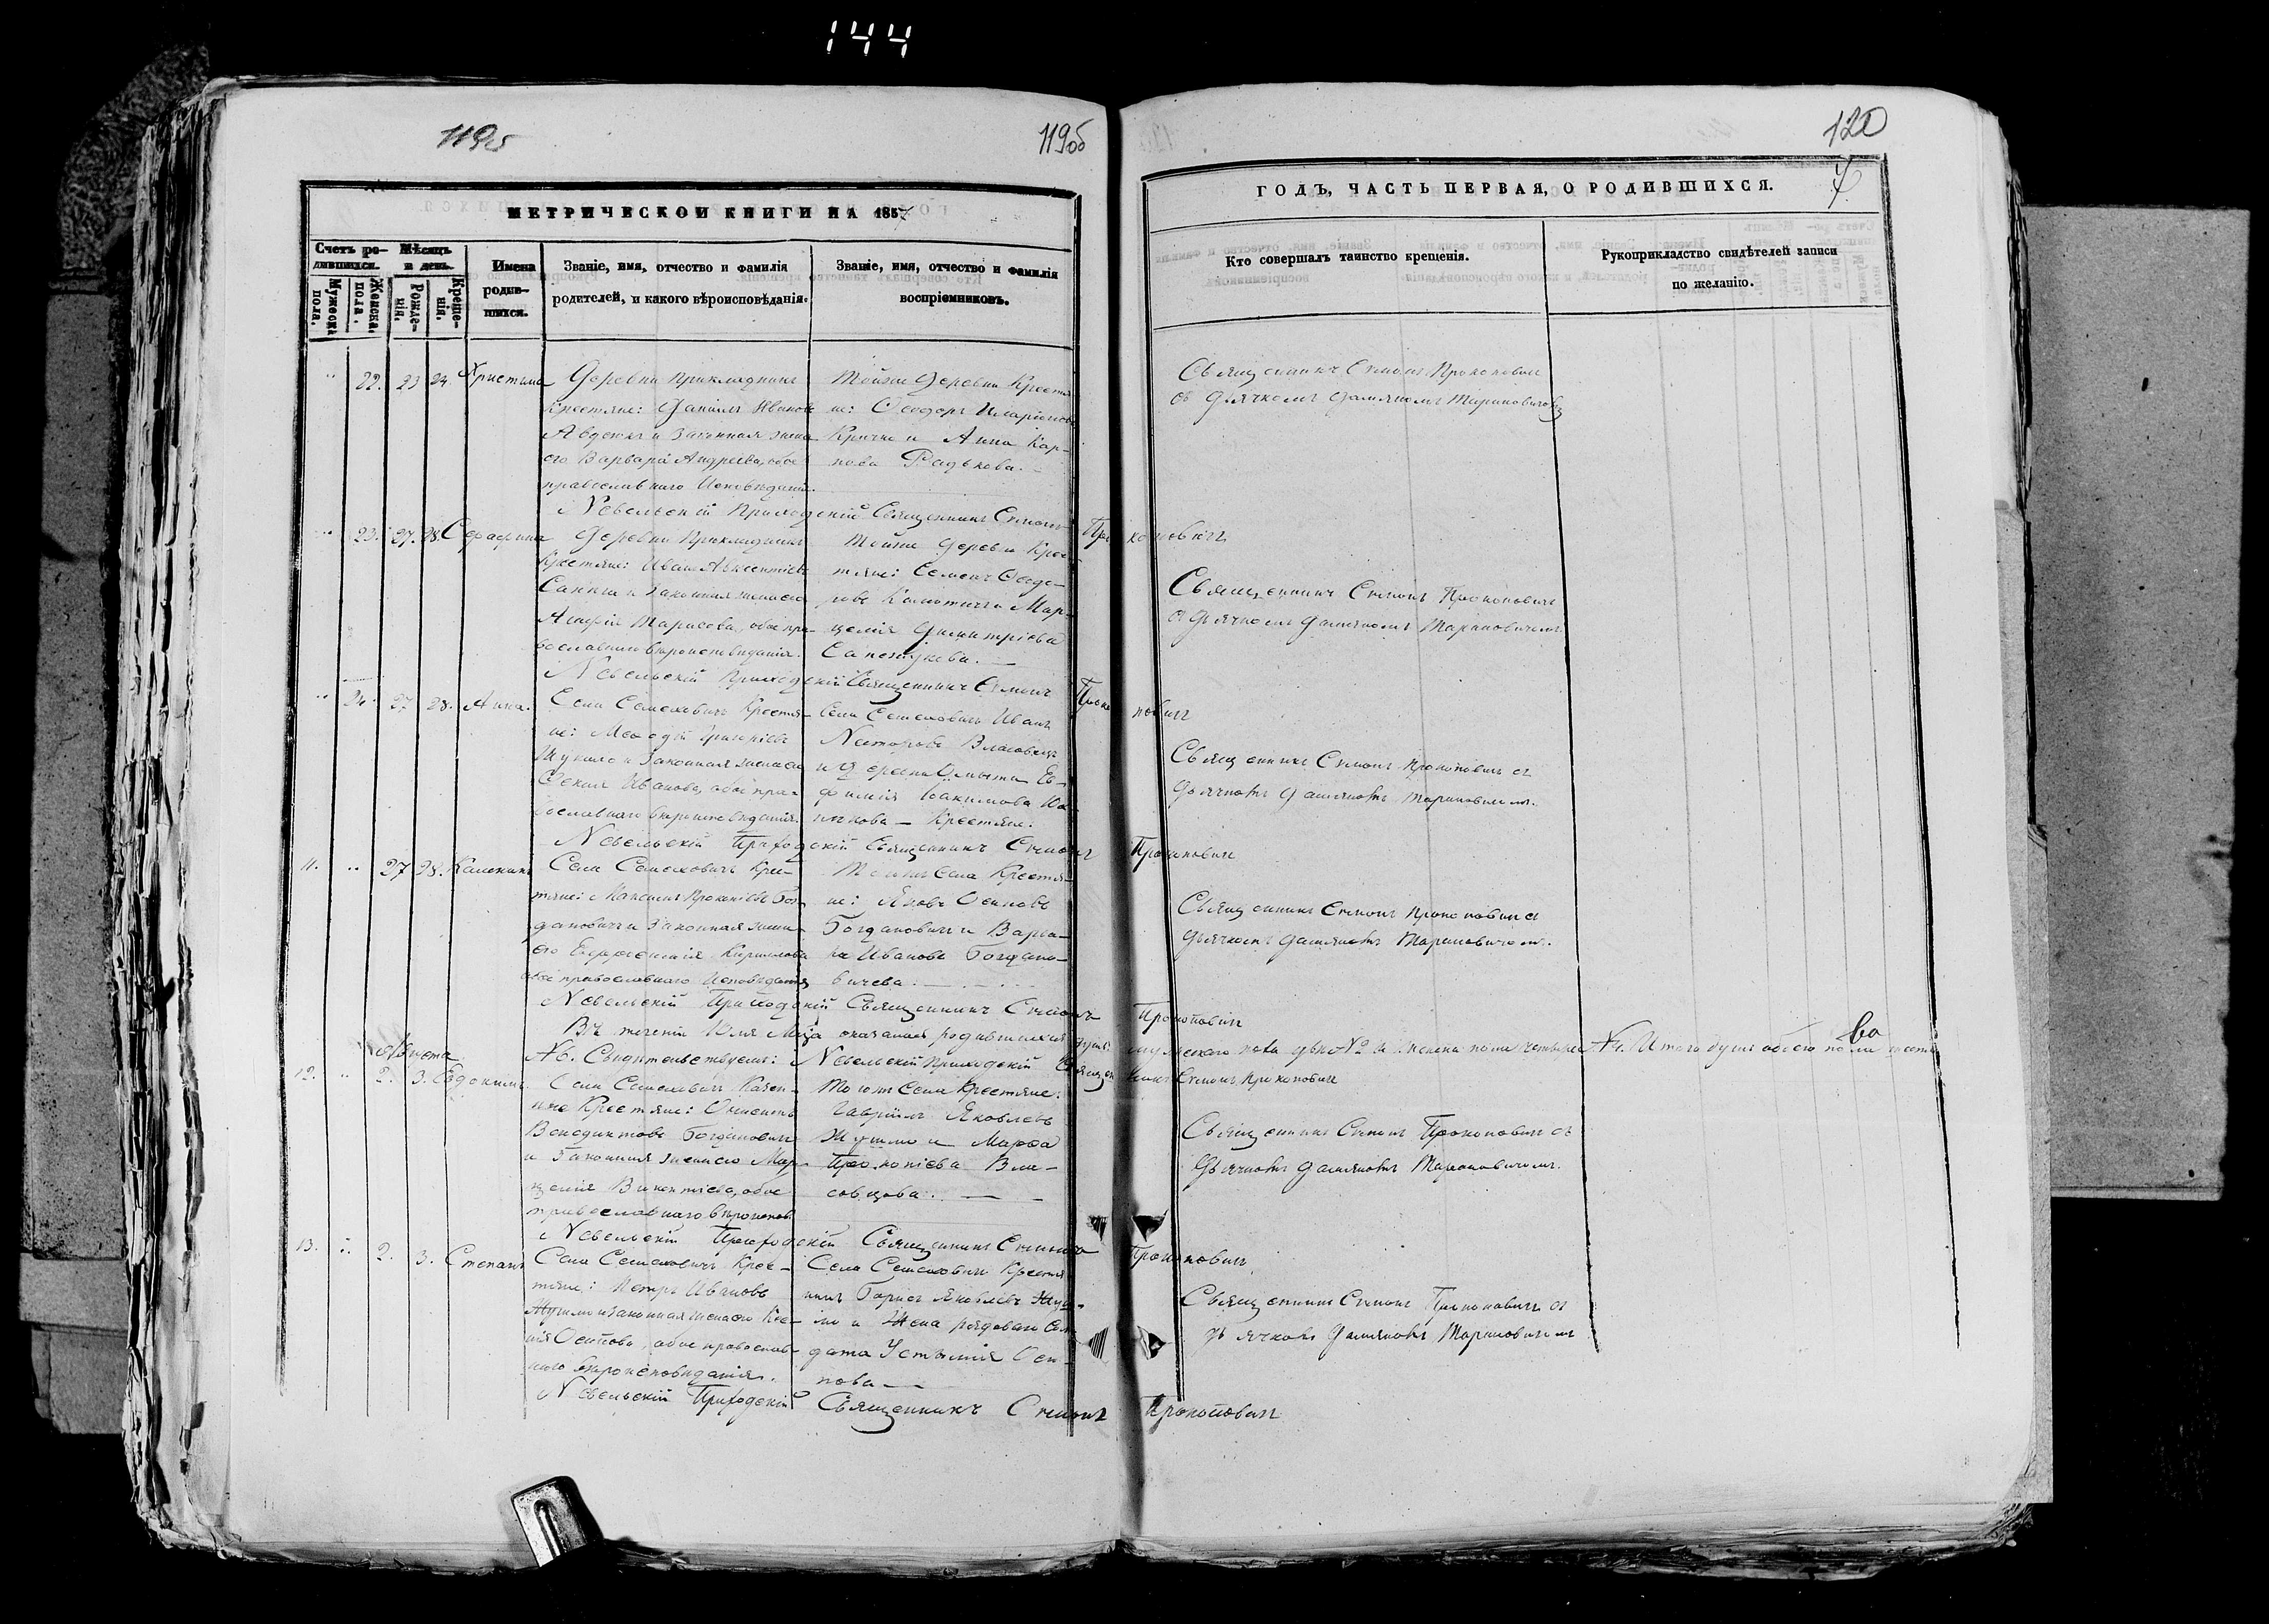 144
119об
119об
120
7
МЕТРИЧЕСКОЙ КНИГИ НА 1857
ГОДЪ, ЧАСТЬ ПЕРВАЯ, О РОДИВШИХСЯ.
Счетъ ро-
дившихся.
Мужеска
пола.
Женска.
пола.
Мѣсяцъ
и день.
Рожде-
нія.
Креще-
нія.
Имена
родив-
шихся.
Званіе, имя, отчество и фамилія
родителей, и какого вѣроисповѣданія.
Званіе, имя, отчество и фамилія
воспріемниковъ.
Кто совершалъ таинство крещенія.
Рукоприкладство свидѣтелей записи
по желанію.
" 22. 23 24. Христина
Деревни Прикладникъ
Крестяне: Даніилъ Ивановъ
и Законная жена
его Варвара Андреева, обое
православнаго Исповѣданія.
Тойже Деревни Крестя
не: Ѳеодоръ Иларіоновъ
и Анна Кар-
пова Радькова.
Священникъ Симонъ Прокоповичъ
съ Дьячкомъ Даміяномъ Мариновичомъ
Невельскій Приходскій Священникъ Симонъ Прокоповичъ
" 23. 27. 28. Серафима
Деревни Прикладникъ
Крестяне: Иванъ Авксентіевъ
и законная жена его
Агафія Тарасова, обое пра-
вославнаго вѣроисповѣданія.
Тойже Деревни Крес-
тяне: Семенъ Ѳеодо-
ровъ и Мар-
целія Димитріева
Сапежукова.
Священникъ Симонъ Прокоповичъ
съ Дьячкомъ Даміяномъ Мариновичомъ
Невельскій Приходскій Священникъ Симонъ Прокоповичъ
" 24. 27 28. Анна.
Села Семеховичъ Крестя-
не: Меѳодій Григоріевъ
и Законная жена его
Ивановъ, обое пра-
вославнаго вѣроисповѣданія.
Села Семеховичъ Иванъ
Несторовъ Власовецъ
и Деревни Ев-
фимія Іоакимова
Крестяне.
Священникъ Симонъ Прокоповичъ съ
Дьячкомъ Даміяномъ Мариновичомъ.
Невельскій Приходскій Священникъ Симонъ Прокоповичъ
11. " 27 28. Каленикъ
Села Семеховичъ Крес-
тяне: Максимъ Прокопіевъ Бог-
дановичъ и Законная жена
его Евфросинія Кирилова
обое православнаго Исповѣданія
Тогожъ Села Крестя-
не: Яковъ Осиповъ
Богдановичъ и Варва-
ра Иванова Богдано-
вичева.
Священникъ Симонъ Прокоповичъ съ
Дьячкомъ Даміяномъ Мариновичомъ.
Невельскій Приходскій Священникъ Симонъ Прокоповичъ
Въ теченіи Юля Мца оказалось родившихся душъ: мужескаго пола двѣ № 2 Женска пола четыре № 4. Итого душъ обоего пола шесть
№ 6. Свидѣтельствуемъ: Невельскій Приходскій Священникъ Симонъ Прокоповичъ
Августа
12. " 2. 3. Евдокимъ.
Села Семеховичъ Казен-
ные Крестяне:
Венедиктовъ Богдановичъ
и Законная жена его Мар-
целія Викентіева, обое
православнаго вѣроиспов.
Тогожъ Села Крестяне:
Гавріилъ Яковлевъ
и Марѳа
Прокопіева Вла-
совцова.
Священникъ Симонъ Прокоповичъ съ
Дьячкомъ Даміяномъ Мариновичомъ.
Невельскій Приходскій Священникъ Симонъ Прокоповичъ
13. " 2. 3. Степанъ
Села Семеховичъ Крес-
тяне: Петръ Ивановъ
и законная жена его Ксе-
нія Осипова, обое православ-
наго вѣроисповѣданія.
Села Семеховичъ Крестя
нинъ Борисъ Яковлевъ
и Жена рядоваго Сол-
дата Устинія Оси-
пова
Священникъ Симонъ Прокоповичъ съ
Дьячкомъ Даміяномъ Мариновичомъ
Невельскій Приходскій Священникъ Симонъ Прокоповичъ